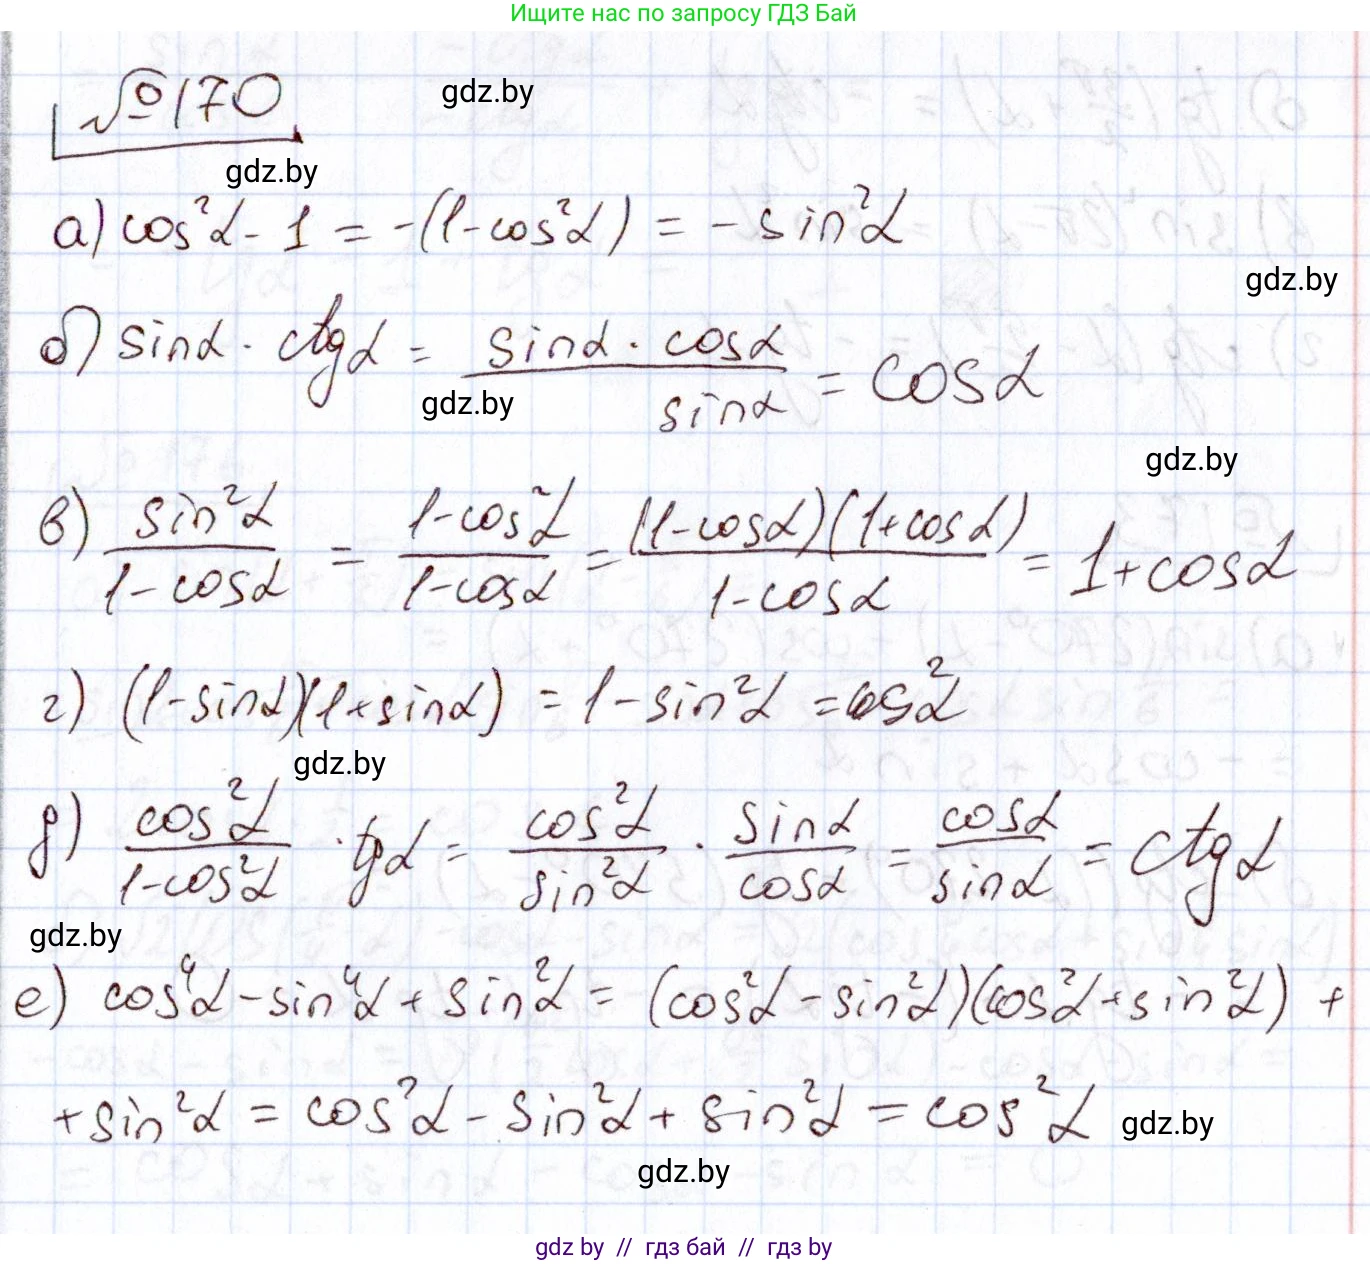 Ищите нас по запросу ГДЗ Бай
№170
gdz.by
gdz.by
а) cos²α - 1 = -(1-cos²α) = -sin²α
gdz.by
б) sinα · ctgα = (sinα · cosα)/sinα = cosα
gdz.by
gdz.by
в) sin²α/(1-cosα) = (1-cos²α)/(1-cosα) = (1-cosα)(1+cosα)/(1-cosα) = 1+cosα
г) (1-sinα)(1+sinα) = 1-sin²α = cos²α
gdz.by
д) cos²α/(1-cos²α) · tgα = cos²α/sin²α · sinα/cosα = cosα/sinα = ctgα
gdz.by
е) cos⁴α - sin⁴α + sin²α = (cos²α - sin²α)(cos²α + sin²α) +
+ sin²α = cos²α - sin²α + sin²α = cos²α
gdz.by
gdz.by
gdz by // гдз бай // гдз by